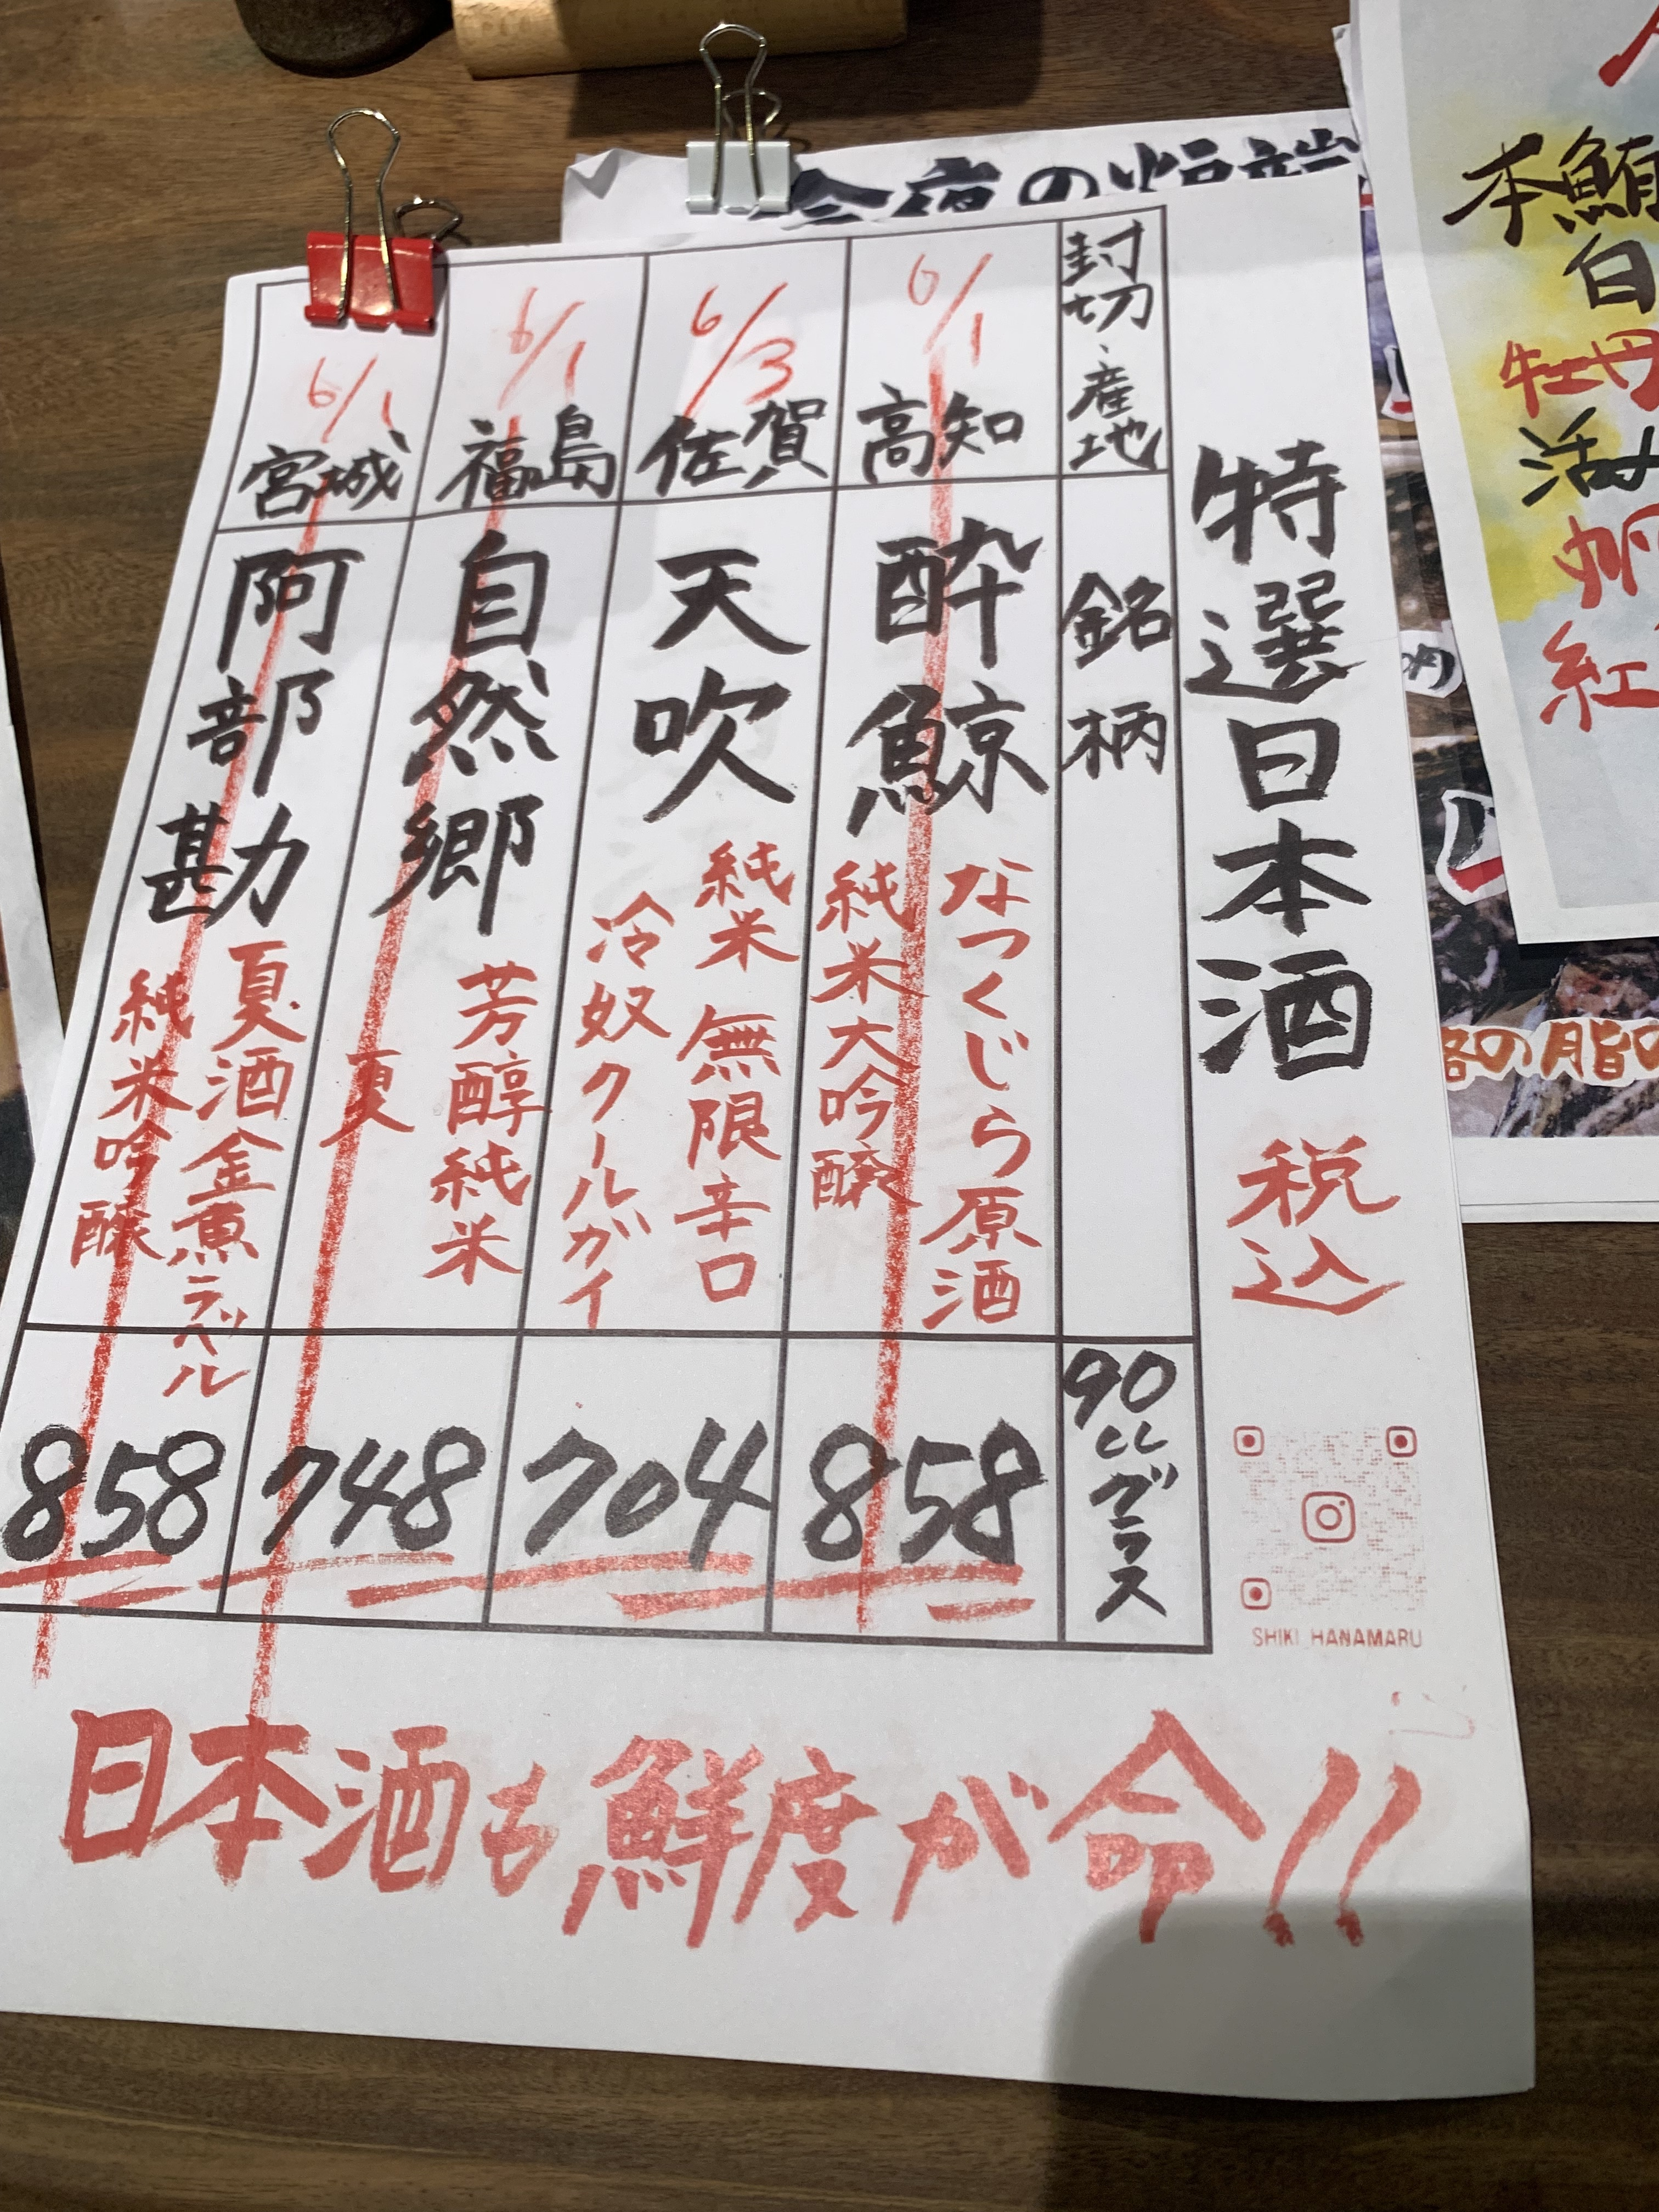 特選日本酒 税込
封切・産地
銘柄
90ccグラス
6/1
高知
酔鯨
なつくじら原酒
純米大吟醸
858
6/3
佐賀
天吹
純米 無限辛口
冷奴クールガイ
704
6/1
福島
自然郷
芳醇純米
夏
748
6/1
宮城
阿部勘
夏酒金魚ラベル
純米吟醸
858
日本酒も鮮度が命!!
SHIKI_HANAMARU
本鮪
白
牡丹
活
紅
の脂の